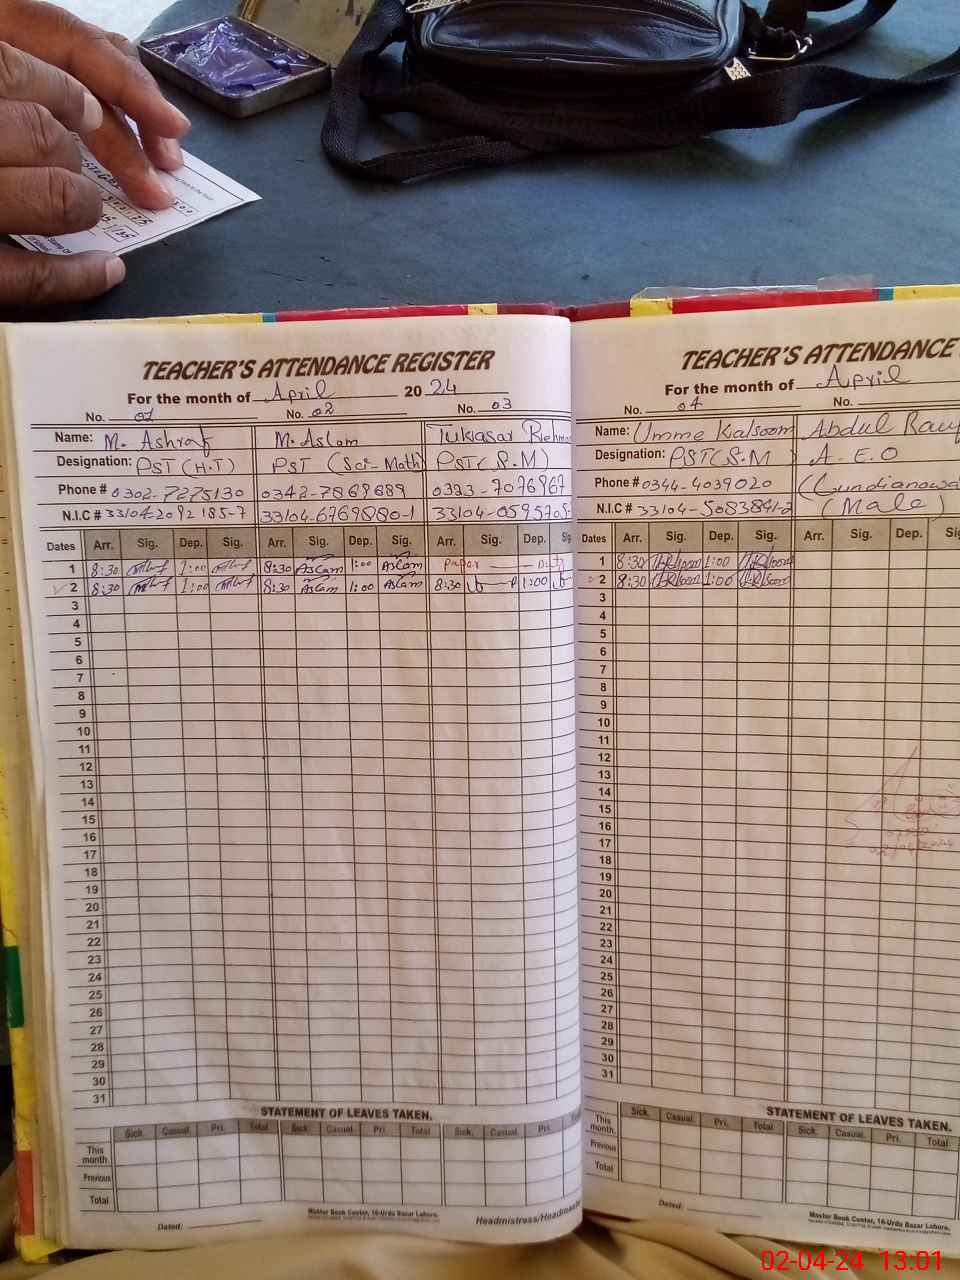 TEACHER'S ATTENDANCE REGISTER
For the month of April 2024
No. 01 No. 02 No. 03
Name: M. Ashraf M. Aslam
Designation: PST (H.T) PST (Sci-Math) PST (S.M)
Phone # 0302-7275130 0342-7869689 0323-7076967
N.I.C # 33104-2092185-7 33104-6769880-1 33104-0595705-
Dates Arr. Sig. Dep. Sig. Arr. Sig. Dep. Sig. Arr. Sig. Dep. Sig
1 8:30 1:00 8:30 Aslam 1:00 Aslam Paper Duty
2 8:30 1:00 8:30 Aslam 1:00 Aslam 8:30 1:00
3
4
5
6
7
8
9
10
11
12
13
14
15
16
17
18
19
20
21
22
23
24
25
26
27
28
29
30
31
STATEMENT OF LEAVES TAKEN.
Sick. Casual. Pri. Total Sick. Casual. Pri. Total Sick. Casual. Pri.
This month.
Previous
Total
Dated:
Master Book Center, 16-Urdu Bazar Lahore.
Headmistress/Headmaster
TEACHER'S ATTENDANCE
For the month of April
No. 04 No.
Name: Umme Kalsoom Abdul Rauf
Designation: PST (S.M A.E.O
Phone # 0344-4039020
N.I.C # 33104-5083841-2 (Male)
Dates Arr. Sig. Dep. Sig. Arr. Sig. Dep. Sig.
1 8:30 1:00
2 8:30 1:00
3
4
5
6
7
8
9
10
11
12
13
14
15
16
17
18
19
20
21
22
23
24
25
26
27
28
29
30
31
STATEMENT OF LEAVES TAKEN.
Sick. Casual. Pri. Total Sick. Casual. Pri. Total
This month.
Previous
Total
Dated:
Master Book Center, 16-Urdu Bazar Lahore.
02-04-24 13:01